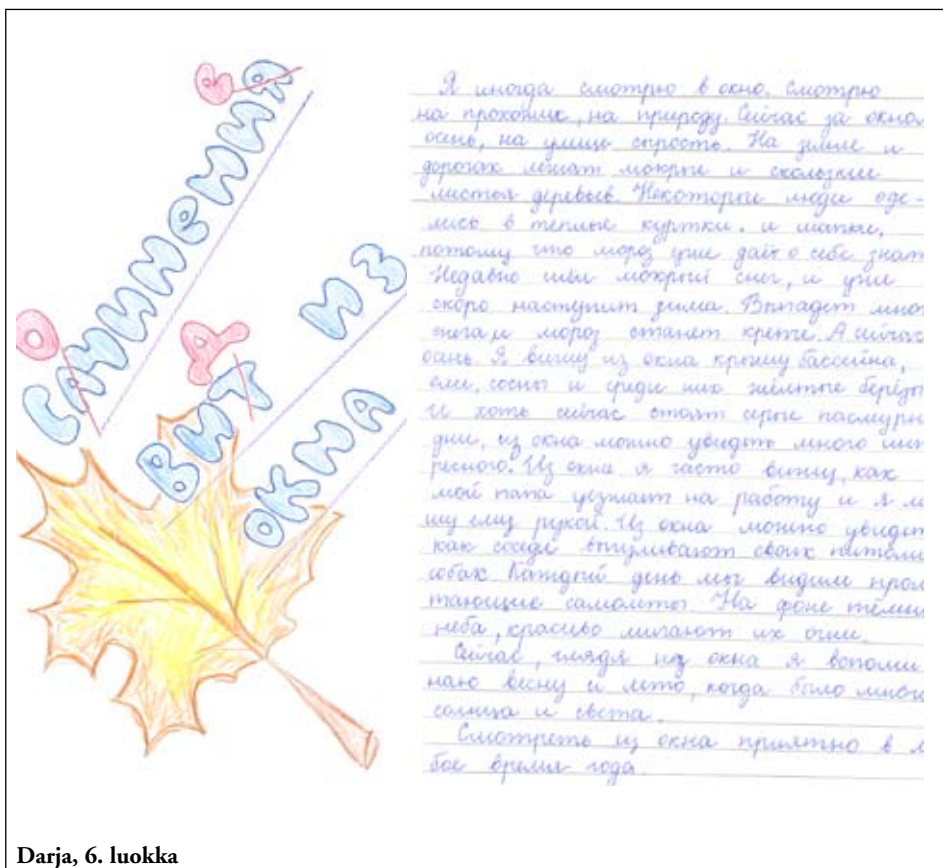 САЧИНЕНИЯ
О
Е
ВИТ ИЗ
Д
ОКНА
Я иногда смотрю в окно. Смотрю
на прохожих, на природу. Сейчас за окно
осень, на улице сырость. На земле и
дорогах лежат мокрые и скользкие
листья деревьев. Некоторые люди оде-
лись в теплые куртки. и шапки,
потому что мороз уже даёт о себе знат
Недавно шёл мокрый снег, и уже
скоро наступит зима. Выпадет мно
снега и мороз станет крепче. А сейчас
осень. Я вижу из окна крышу бассейна,
ели, сосны и среди них жёлтые берёзы
И хоть сейчас стоят серые пасмурн
дни, из окна можно увидеть много инт
ресного. Из окна я часто вижу, как
мой папа уезжает на работу и я м
шу ему рукой. Из окна можно увидет
как соседи выгуливают своих питоми
собак. Каждый день мы видим проле
тающие самолёты На фоне тёмн
неба, красиво мигают их огни.
Сейчас, глядя из окна я вспоми
наю весну и лето, когда было много
солнца и света.
Смотреть из окна приятно в л
бое время года.
Darja, 6. luokka